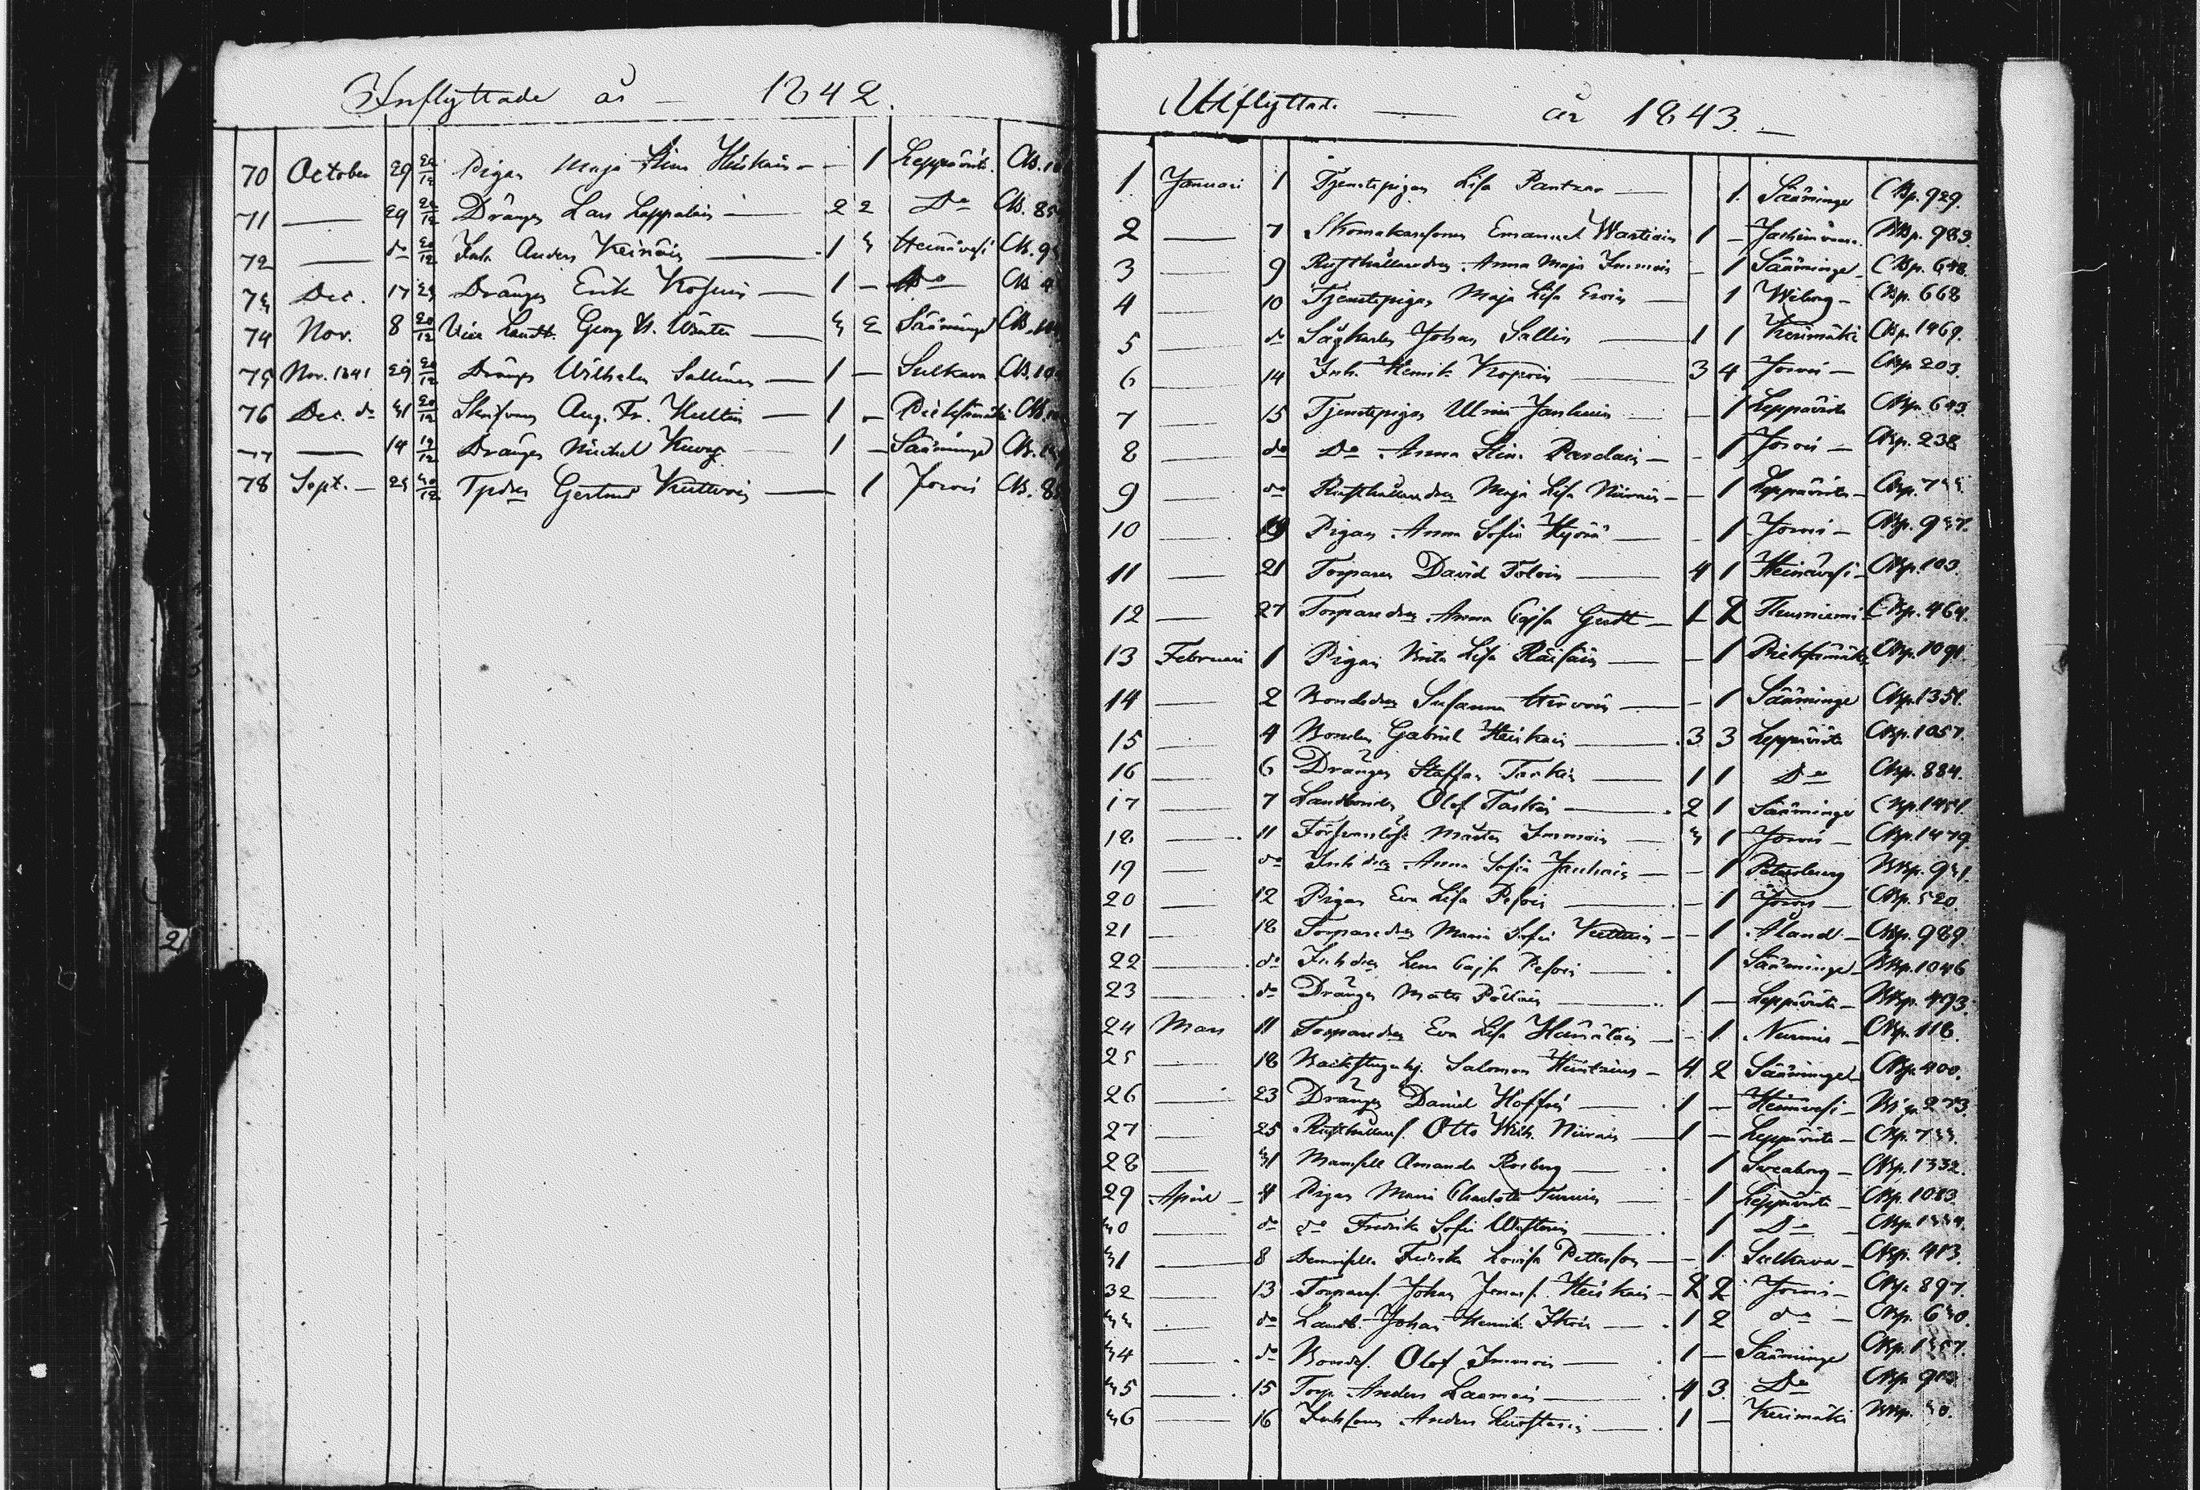 Inflyttade år — 1842.
70 October 29 20/12 Pigan Maja Stina Heiskain — – 1 Leppävirt. CB.
71 — 29 20/12 Drängen Lars Leppälain — 2 2 Do CB. 85
72 — do 20/12 Inh. Anders Keinäin — 1 3 Heinävesi CB. 9
73 Dec. 17 23 Drängen Erik Kosuin — 1 – Do CB
74 Nov. 8 20/12 Vice Landt. Georg W. Winter — 3 2 Sääminge CB.
75 Nov. 1841 29 20/12 Drängen Wilhelm Sallinen — 1 – Sulkava CB. 10
76 Dec. do 31 20/12 Skrifvaren Aug. Fr. Hultin — 1 – Pieksämäki CB.
77 — 14 19/12 Drängen Michel Kuorg — 1 – Sääminge CB.
78 Sept. — 25 30/12 Tpdr Gertrud Kuttvoin — 1 Jorois CB. 8
Utflyttade — år 1843. —
1 Januari 1 Tjenstepigan Lisa Pantzar — 1 Sääminge CBp. 929.
2 — 7 Skomakaresonen Emanuel Wartiain 1 – BBp. 983.
3 — 9 Rusthållaredr. Anna Maja Immoin – 1 Sääminge CBp. 648.
4 — 10 Tjenstepigan Maja Lisa Eroin — 1 Wiborg – CBp. 668
5 — do Sågkarlen Johan Sallin — 1 1 Kerimäki CBp. 1469.
6 — 14 Inh. Henrik Kopoin — 3 4 Jorois — CBp. 203.
7 — 15 Tjenstepigan Ulrica Janhuin — – 1 Leppävirta CBp. 643.
8 — do Do Anna Stin. Pardain — – 1 Jorois — CBp. 238
9 — do Rusthållaredr Maja Lisa Niirain — – 1 Leppävirta – CBp. 733.
10 — 19 Pigan Anna Sofia Hyörä — – 1 Jorois — CBp. 937.
11 — 21 Torparen David Toloin — 4 1 Heinävesi – CBp. 103.
12 — 27 Torparedr. Anna Cajsa Gutt — 1 2 Tuusniemi CBp. 464.
13 Februari 1 Pigan Brita Lisa Räisäin — – 1 Pieksämäki CBp. 1091.
14 — 2 Bondedr Susanna Hirvoin — – 1 Sääminge CBp. 1351.
15 — 4 Bonden Gabriel Heiskain — 3 3 Leppävirta CBp. 1057.
16 — 6 Drängen Staffan Tarkin — 1 1 Do CBp. 884.
17 — 7 Landbonden Olof Taskin — 2 1 Sääminge CBp. 1451.
18 — 11 Försvarslöse Mårten Immoin — 3 1 Jorois — CBp. 1479.
19 — do Inh. dr. Anna Sofia Janhuin — – 1 Petersburg BBp. 931.
20 — 12 Pigan Eva Lisa Pesoin — 1 Jorois — CBp. 520.
21 — 18 Torparedr Maria Sofia Kuttuin – – 1 Åland – CBp. 989.
22 — do Inh dr Lena Cajsa Pesoin — 1 Sääminge – BBp. 1046
23 — do Drängen Mats Pölläin — 1 – Leppävirta – BBp. 493.
24 Mars 11 Torparedr Eva Lisa Hämäläin – 1 Nurmis – CBp. 118.
25 — 18 Backstuguhj. Salomon Hintrius — 4 2 Sääminge CBp. 400.
26 — 23 Drängen Daniel Hoffrén — 1 – Heinävesi – B p. 273.
27 — 25 Rusthållares. Otto Wilh. Niirain — 1 – Leppävirta – CBp. 733.
28 — 31 Mamsell Amanda Rosberg — 1 Sveaborg – CBp. 1332.
29 April – 4 Pigan Maria Charlotta Turuin — – 1 Leppävirta – CBp. 1083
30 — do do Fredrika Sofia Westerin — 1 Do CBp. 1334.
31 — 8 Demoiselle Fredrika Lovisa Petterson — – 1 Sulkava – CBp. 413.
32 — 13 Torpares. Johan Jonass. Heiskain – 2 2 Jorois – CBp. 897.
33 — do Landb. Johan Henrik Ikoin — 1 2 do – CBp. 630.
34 — do Bondes. Olof Immoin — 1 – Sääminge CBp. 1357.
35 — 15 Torp. Anders Laamain — 4 3 Do CBp. 913.
36 — 16 Inhsonen Anders — 1 – Kerimäki BBp. 30.
2